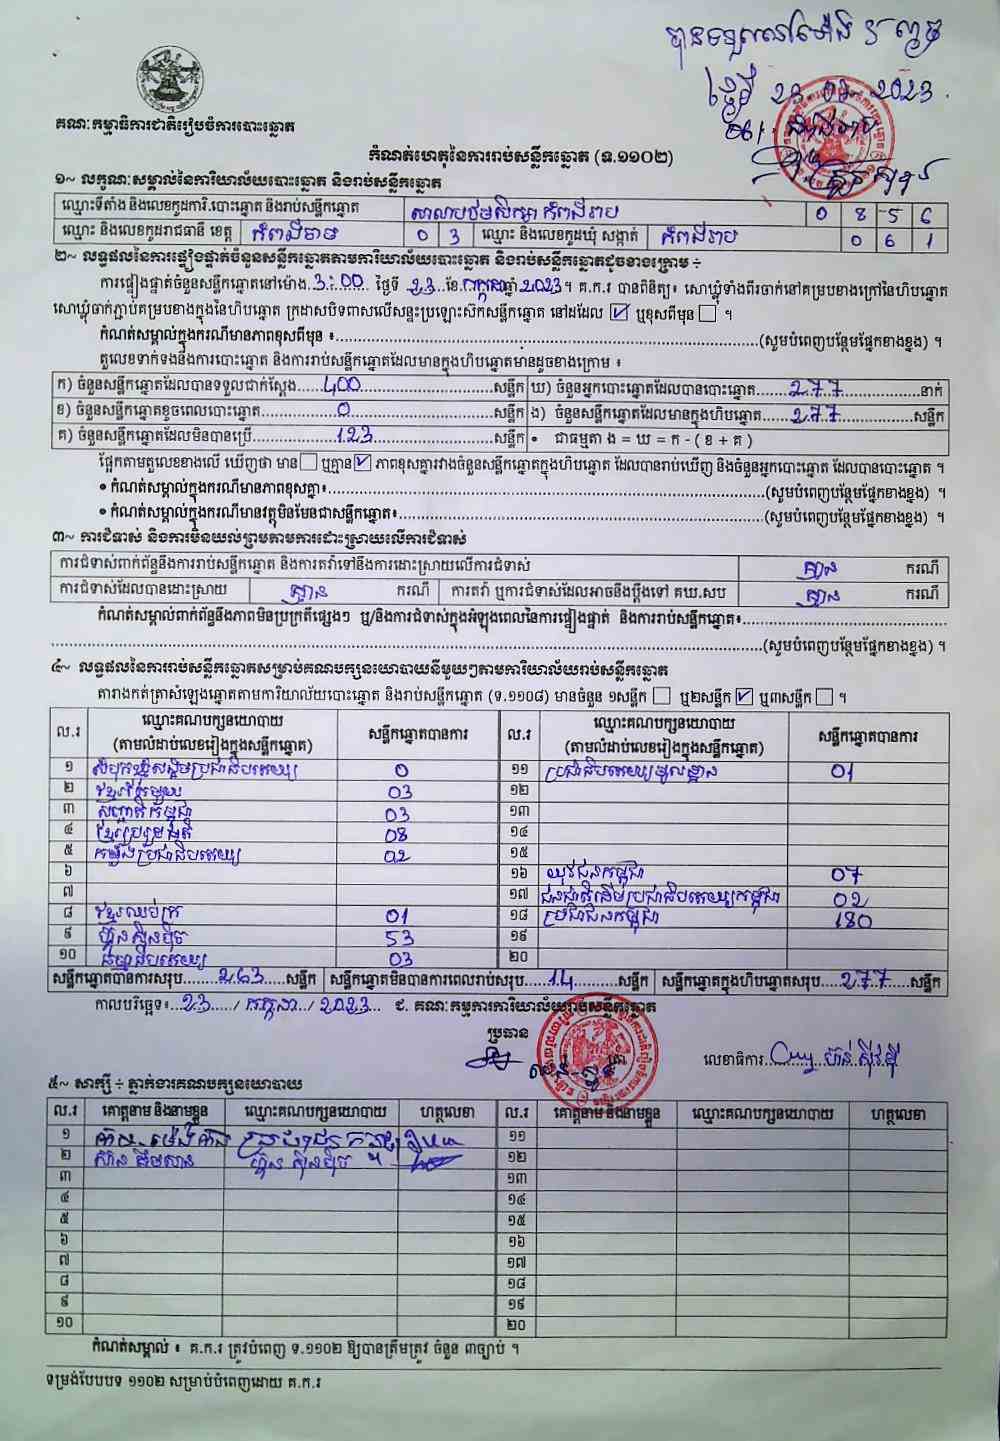 បានទទួលនៅម៉ោង ៖ ល្ងាច
ថ្ងៃទី 23 . 07 . 2023 .
គណៈកម្មាធិការជាតិរៀបចំការបោះឆ្នោត
កំណត់ហេតុនៃការរាប់សន្លឹកឆ្នោត (ទ.១១០២)
១~ លក្ខណៈសម្គាល់នៃការិយាល័យបោះឆ្នោត និងរាប់សន្លឹកឆ្នោត
ឈ្មោះទីតាំង និងលេខកូដការិ.បោះឆ្នោត និងរាប់សន្លឹកឆ្នោត សាលាបឋមសិក្សា កំពង់រាប 0 8 5 6
ឈ្មោះ និងលេខកូដរាជធានី ខេត្ត កំពង់ចាម 0 3 ឈ្មោះ និងលេខកូដឃុំ សង្កាត់ កំពង់រាប 0 6 1
២~ លទ្ធផលនៃការផ្ទៀងផ្ទាត់ចំនួនសន្លឹកឆ្នោតតាមការិយាល័យបោះឆ្នោត និងរាប់សន្លឹកឆ្នោតដូចខាងក្រោម ÷
ការផ្ទៀងផ្ទាត់ចំនួនសន្លឹកឆ្នោតនៅម៉ោង 3:00 ថ្ងៃទី 23 ខែ កក្កដា ឆ្នាំ 2023 ។ គ.ក.រ បានពិនិត្យ៖ សោឃ្លុំទាំងពីរចាក់នៅគម្របខាងក្រៅនៃហិបឆ្នោត
សោឃ្លុំចាក់ភ្ជាប់គម្របខាងក្នុងនៃហិបឆ្នោត ក្រដាសបិទពាសលើសន្ទះប្រឡោះស៊កសន្លឹកឆ្នោត នៅដដែល ☑ ឬខុសពីមុន ☐ ។
កំណត់សម្គាល់ក្នុងករណីមានភាពខុសពីមុន ៖ (សូមបំពេញបន្ថែមផ្នែកខាងខ្នង) ។
តួលេខទាក់ទងនឹងការបោះឆ្នោត និងការរាប់សន្លឹកឆ្នោតដែលមានក្នុងហិបឆ្នោតមានដូចខាងក្រោម ៖
ក) ចំនួនសន្លឹកឆ្នោតដែលបានទទួលជាក់ស្តែង 400 សន្លឹក ឃ) ចំនួនអ្នកបោះឆ្នោតដែលបានបោះឆ្នោត 277 នាក់
ខ) ចំនួនសន្លឹកឆ្នោតខូចពេលបោះឆ្នោត 0 សន្លឹក ង) ចំនួនសន្លឹកឆ្នោតដែលមានក្នុងហិបឆ្នោត 277 សន្លឹក
គ) ចំនួនសន្លឹកឆ្នោតដែលមិនបានប្រើ 123 សន្លឹក • ជាធម្មតា ង = ឃ = ក - ( ខ + គ )
ផ្អែកតាមតួលេខខាងលើ ឃើញថា មាន ☐ ឬគ្មាន ☑ ភាពខុសគ្នារវាងចំនួនសន្លឹកឆ្នោតក្នុងហិបឆ្នោត ដែលបានរាប់ឃើញ និងចំនួនអ្នកបោះឆ្នោត ដែលបានបោះឆ្នោត ។
• កំណត់សម្គាល់ក្នុងករណីមានភាពខុសគ្នា៖ (សូមបំពេញបន្ថែមផ្នែកខាងខ្នង) ។
• កំណត់សម្គាល់ក្នុងករណីមានវត្ថុមិនមែនជាសន្លឹកឆ្នោត៖ (សូមបំពេញបន្ថែមផ្នែកខាងខ្នង) ។
៣~ ការជំទាស់ និងការមិនយល់ព្រមតាមការដោះស្រាយលើការជំទាស់
ការជំទាស់ពាក់ព័ន្ធនឹងការរាប់សន្លឹកឆ្នោត និងការតវ៉ាទៅនឹងការដោះស្រាយលើការជំទាស់ គ្មាន ករណី
ការជំទាស់ដែលបានដោះស្រាយ គ្មាន ករណី ការតវ៉ា ឬការជំទាស់ដែលអាចនឹងប្តឹងទៅ គឃ.សប គ្មាន ករណី
កំណត់សម្គាល់ពាក់ព័ន្ធនឹងភាពមិនប្រក្រតីផ្សេងៗ ឬ/និងការជំទាស់ក្នុងអំឡុងពេលនៃការផ្ទៀងផ្ទាត់ និងការរាប់សន្លឹកឆ្នោត៖
(សូមបំពេញបន្ថែមផ្នែកខាងខ្នង) ។
៤~ លទ្ធផលនៃការរាប់សន្លឹកឆ្នោតសម្រាប់គណបក្សនយោបាយនីមួយៗតាមការិយាល័យរាប់សន្លឹកឆ្នោត
តារាងកត់ត្រាសំឡេងឆ្នោតតាមការិយាល័យបោះឆ្នោត និងរាប់សន្លឹកឆ្នោត (ទ.១១០៨) មានចំនួន ១សន្លឹក ☐ ឬ២សន្លឹក ☑ ឬ៣សន្លឹក ☐ ។
ល.រ ឈ្មោះគណបក្សនយោបាយ (តាមលំដាប់លេខរៀងក្នុងសន្លឹកឆ្នោត) សន្លឹកឆ្នោតបានការ ល.រ ឈ្មោះគណបក្សនយោបាយ (តាមលំដាប់លេខរៀងក្នុងសន្លឹកឆ្នោត) សន្លឹកឆ្នោតបានការ
១ សំបុកឃ្មុំសង្គមប្រជាធិបតេយ្យ 0 ១១ ប្រជាធិបតេយ្យមូលដ្ឋាន 01
២ ខ្មែរតែមួយ 03 ១២
៣ សញ្ជាតិកម្ពុជា 03 ១៣
៤ ខ្មែររួបរួមជាតិ 08 ១៤
៥ កម្លាំងប្រជាធិបតេយ្យ 02 ១៥
៦ ១៦ យុវជនកម្ពុជា 07
៧ ១៧ ជនជាតិដើមប្រជាធិបតេយ្យកម្ពុជា 02
៨ ខ្មែរឈប់ក្រ 01 ១៨ ប្រជាជនកម្ពុជា 180
៩ ហ៊្វុនស៊ិនប៉ិច 53 ១៩
១០ ធម្មាធិបតេយ្យ 03 ២០
សន្លឹកឆ្នោតបានការសរុប 263 សន្លឹក សន្លឹកឆ្នោតមិនបានការពេលរាប់សរុប 14 សន្លឹក សន្លឹកឆ្នោតក្នុងហិបឆ្នោតសរុប 277 សន្លឹក
កាលបរិច្ឆេទ៖ 23 / កក្កដា / 2023 ជ. គណៈកម្មការការិយាល័យរាប់សន្លឹកឆ្នោត
ប្រធាន
លេខាធិការ
៥~ សាក្សី ÷ ភ្នាក់ងារគណបក្សនយោបាយ
ល.រ គោត្តនាម និងនាមខ្លួន ឈ្មោះគណបក្សនយោបាយ ហត្ថលេខា ល.រ គោត្តនាម និងនាមខ្លួន ឈ្មោះគណបក្សនយោបាយ ហត្ថលេខា
១ ប្រជាជនកម្ពុជា ១១
២ ហ៊្វុនស៊ិនប៉ិច ១២
៣ ១៣
៤ ១៤
៥ ១៥
៦ ១៦
៧ ១៧
៨ ១៨
៩ ១៩
១០ ២០
កំណត់សម្គាល់ ៖ គ.ក.រ ត្រូវបំពេញ ទ.១១០២ ឱ្យបានត្រឹមត្រូវ ចំនួន ៣ច្បាប់ ។
ទម្រង់បែបបទ ១១០២ សម្រាប់បំពេញដោយ គ.ក.រ